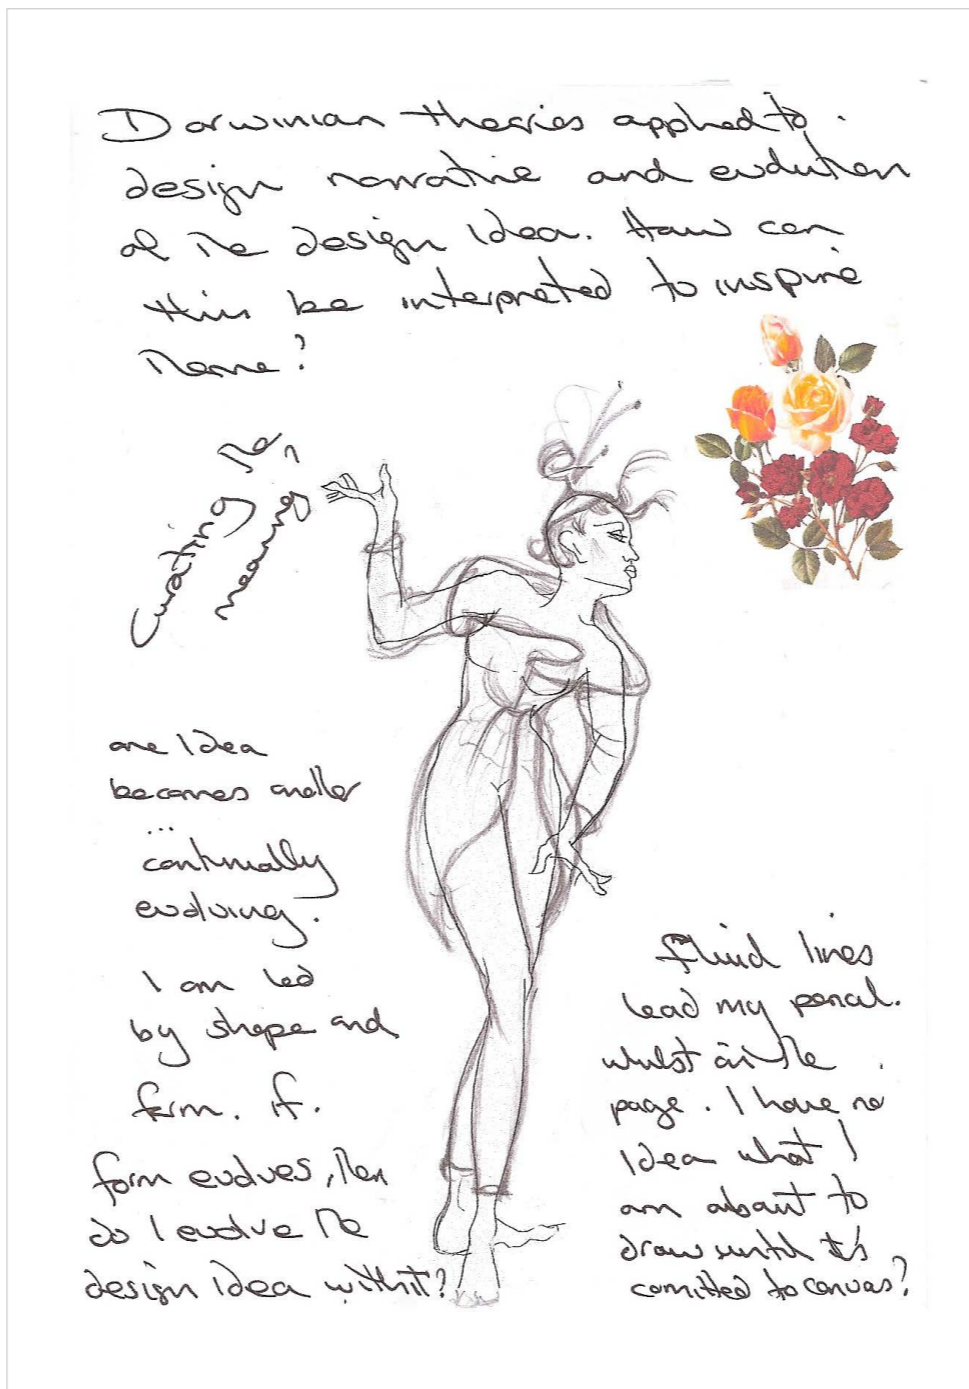 Darwinian theories applied to
design narrative and evolution
of the design idea. How can
this be interpreted to inspire
theme?
Curating the
meaning,
one idea
becomes another
...
continually
evolving.
I am led
by shape and
form. if.
form evolves, then
do I evolve the
design idea with it?
Fluid lines
lead my pencil.
whilst on the
page. I have no
idea what I
am about to
draw until it's
comitted to canvas?